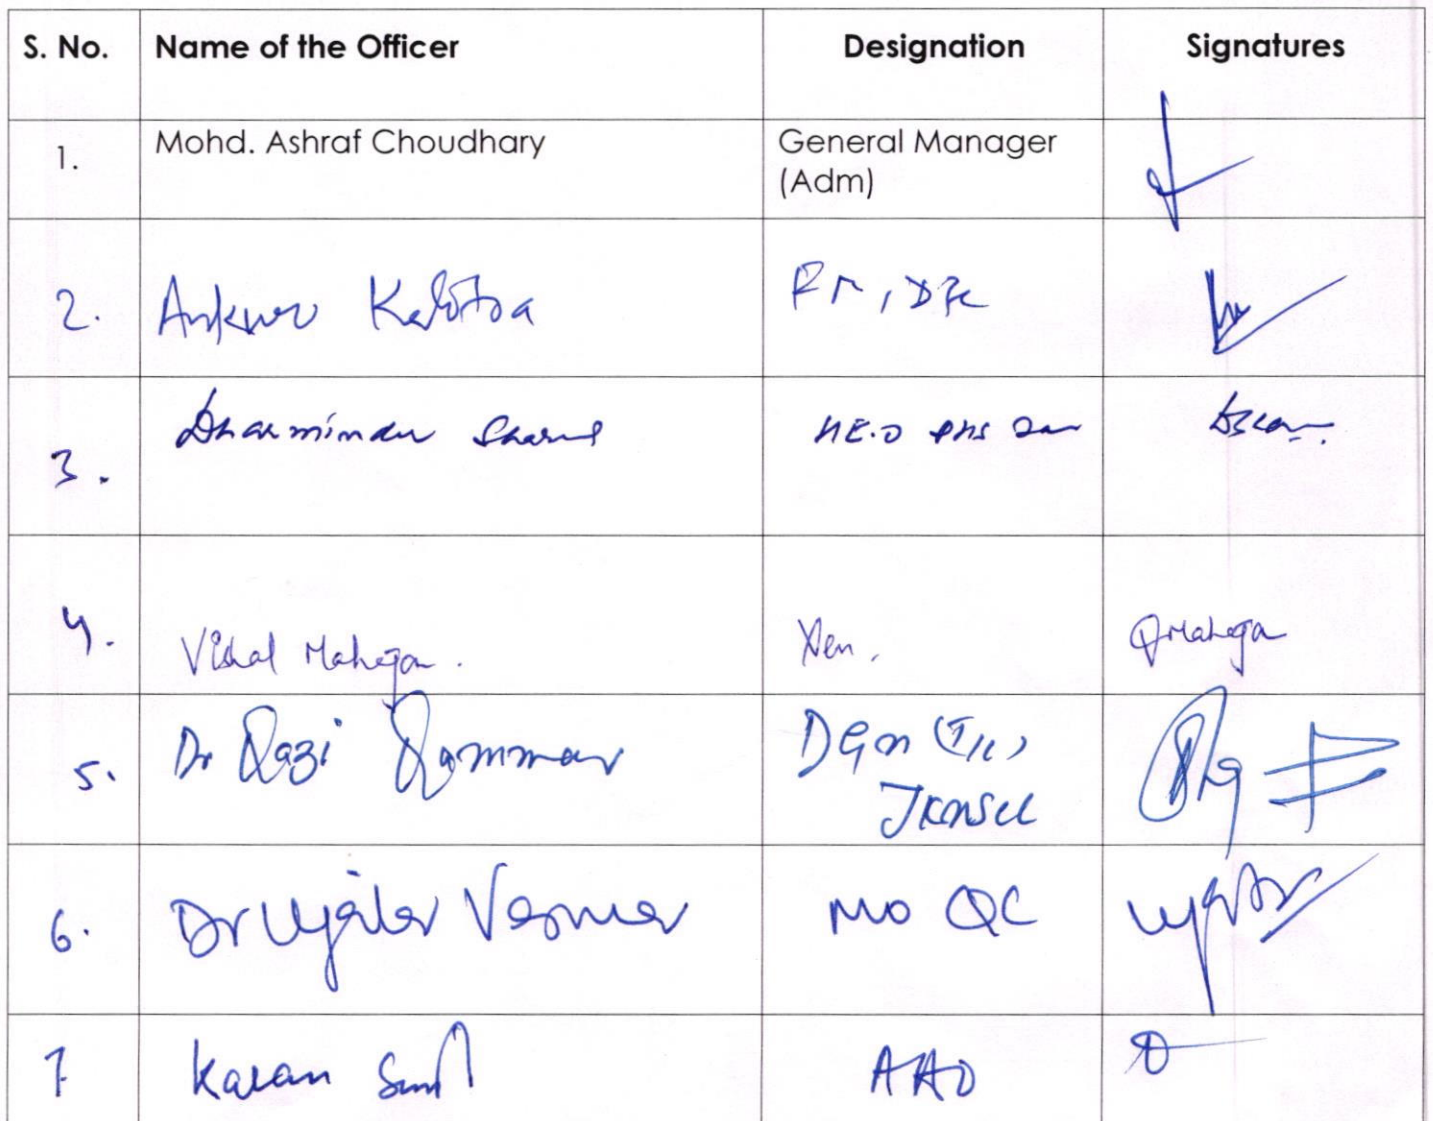 S. No. Name of the Officer Designation Signatures
1. Mohd. Ashraf Choudhary General Manager
(Adm)
2. Ankur Kalotra
3. Dharminder Sharma
4. Vishal Mahajan. Xen.
5. Dr Qazi Qammar DGM
JKMSCL
6. Dr Verma MO QC
7 Karan AAO